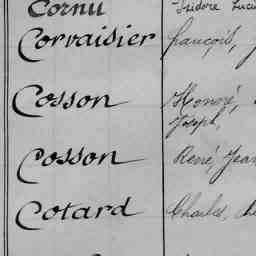 Cornu Isidore Luci
Corvaisier françois, J
Cosson Honoré,
Joseph,
Cosson René, Jean
Cotard Charles,